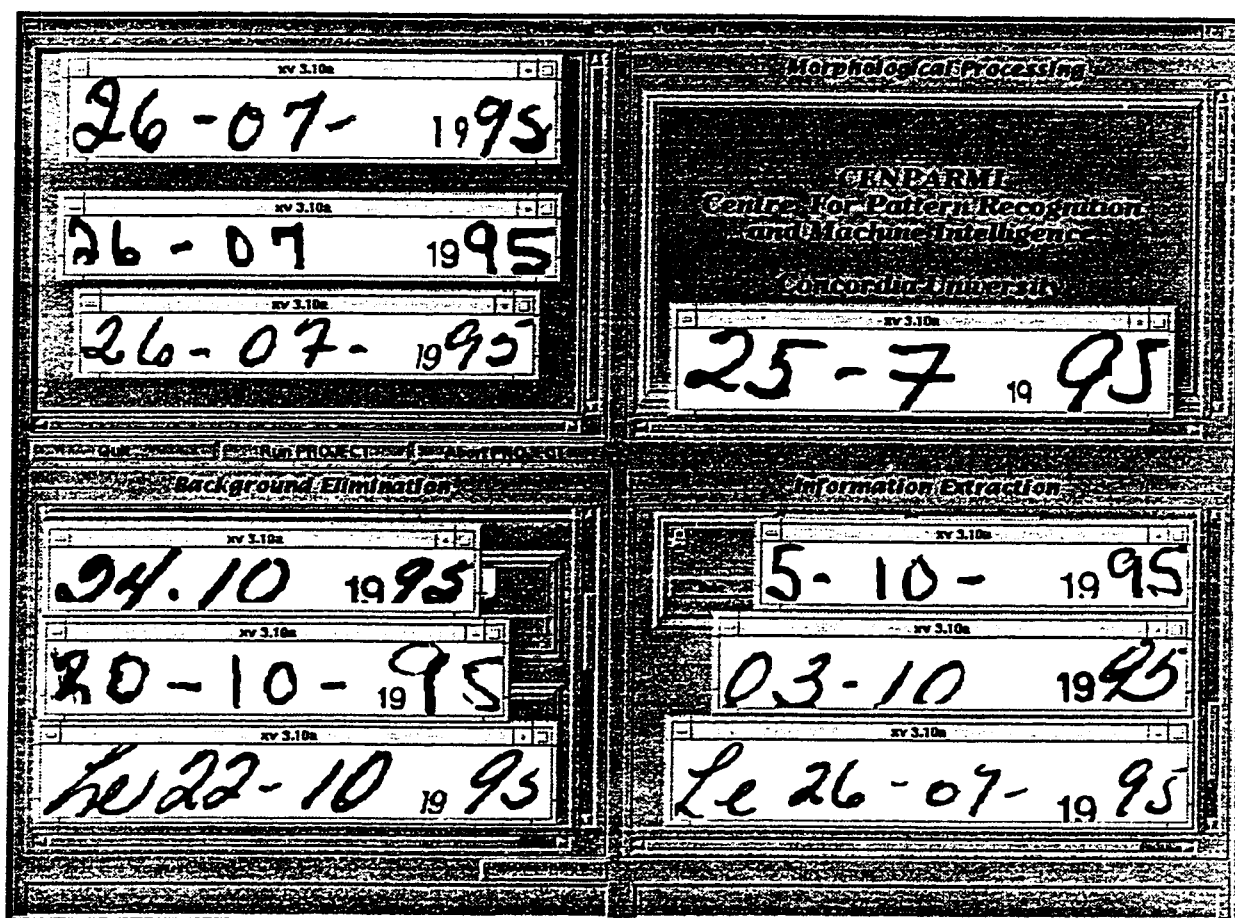 xv 3.10a
26-07- 1995
xv 3.10a
26-07 1995
xv 3.10a
26-07- 1995
Morphological Processing
CENPARMI
Centre For Pattern Recognition
and Machine Intelligence
Concordia University
xv 3.10a
25-7 1995
Quit Run PROJECT Abort PROJECT
Background Elimination
xv 3.10a
24.10 1995
xv 3.10a
20-10-1995
xv 3.10a
Le 22-10 1995
Information Extraction
xv 3.10a
5-10- 1995
xv 3.10a
03-10 1995
xv 3.10a
Le 26-07- 1995